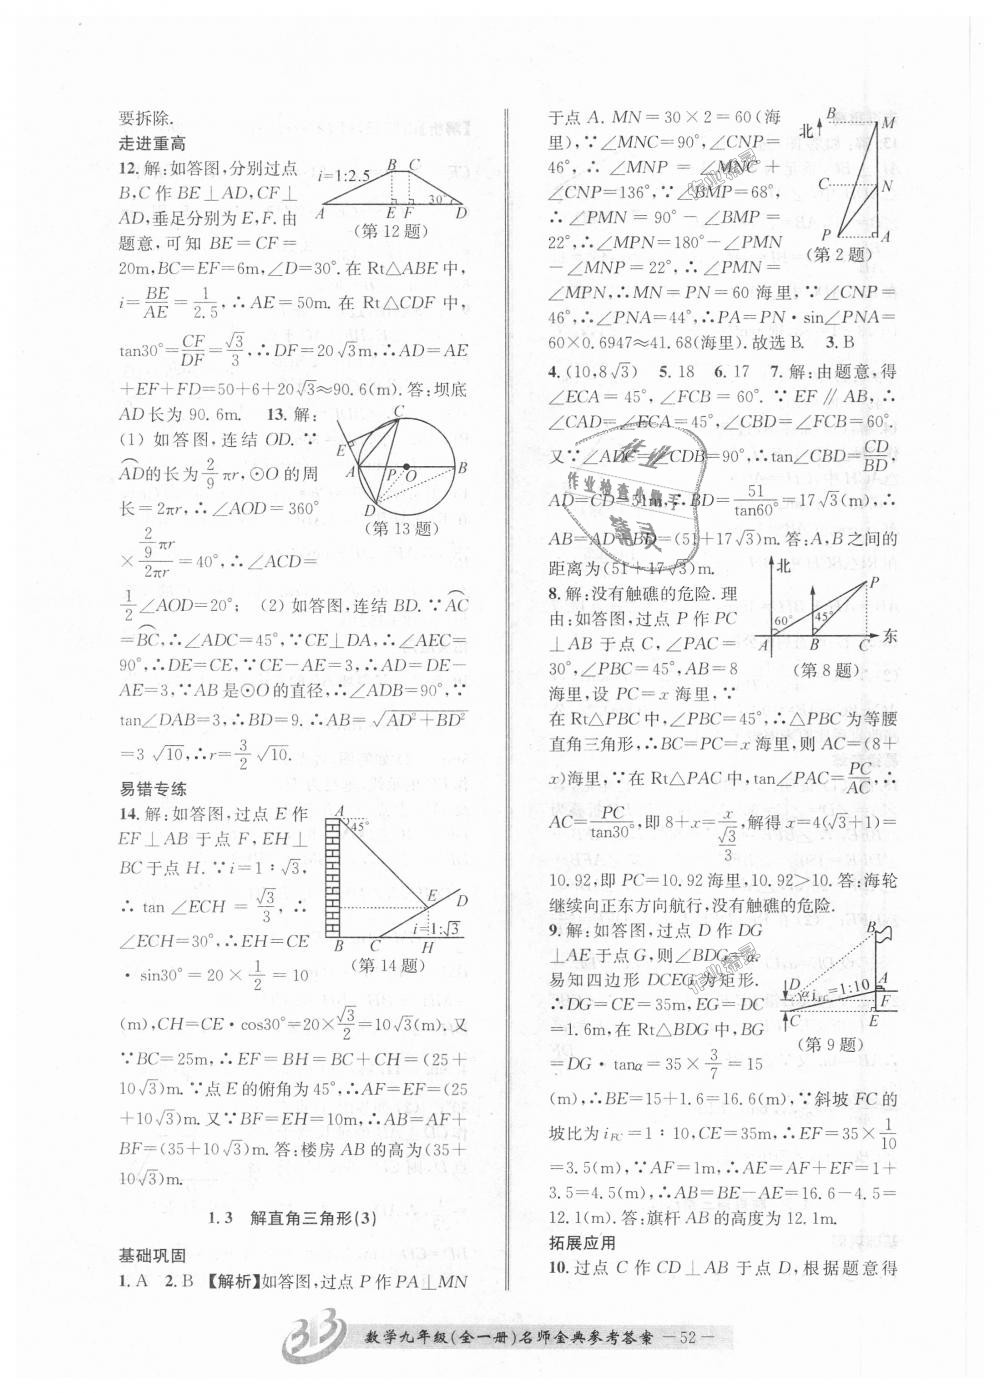 要拆除.
走进重高
12. 解:如答图,分别过点
B,C作BE⊥AD,CF⊥
AD,垂足分别为E,F. 由
题意,可知 BE=CF=
20m,BC=EF=6m,∠D=30°. 在Rt△ABE中,
i=BE/AE=1/2.5,∴AE=50m. 在Rt△CDF中,
tan30°=CF/DF=√3/3,∴DF=20√3m.∴AD=AE
+EF+FD=50+6+20√3≈90.6(m). 答:坝底
AD长为90.6m. 13. 解:
(1) 如答图,连结OD. ∵
AD的长为2/9πr,⊙O的周
长=2πr,∴∠AOD=360°
×(2/9πr)/(2πr)=40°,∴∠ACD=
1/2∠AOD=20°; (2) 如答图,连结BD. ∵AC
=BC,∴∠ADC=45°,∵CE⊥DA,∴∠AEC=
90°,∴DE=CE,∵CE-AE=3,∴AD=DE-
AE=3,∵AB是⊙O的直径,∴∠ADB=90°,∵
tan∠DAB=3,∴BD=9.∴AB=√(AD²+BD²)
=3√10,∴r=3/2√10.
易错专练
14. 解:如答图,过点E作
EF⊥AB于点F,EH⊥
BC于点H. ∵i=1:√3,
∴tan∠ECH=√3/3,∴
∠ECH=30°,∴EH=CE
·sin30°=20×1/2=10
(m),CH=CE·cos30°=20×√3/2=10√3(m). 又
∵BC=25m,∴EF=BH=BC+CH=(25+
10√3)m. ∵点E的俯角为45°,∴AF=EF=(25
+10√3)m. 又∵BF=EH=10m,∴AB=AF+
BF=(35+10√3)m. 答:楼房AB的高为(35+
10√3)m.
1.3 解直角三角形(3)
基础巩固
1. A 2. B 【解析】如答图,过点P作PA⊥MN
i=1:2.5
B C
A E F 30° D
(第12题)
C
E
A P O B
D
(第13题)
A
45°
E D
i=1:√3
B C H
(第14题)
于点A. MN=30×2=60(海
里),∵∠MNC=90°,∠CNP=
46°,∴∠MNP=∠MNC+
∠CNP=136°,∵∠BMP=68°,
∴∠PMN=90°-∠BMP=
22°,∴∠MPN=180°-∠PMN
-∠MNP=22°,∴∠PMN=
∠MPN,∴MN=PN=60海里,∵∠CNP=
46°,∴∠PNA=44°,∴PA=PN·sin∠PNA=
60×0.6947≈41.68(海里). 故选B. 3. B
4. (10,8√3) 5. 18 6. 17 7. 解:由题意,得
∠ECA=45°,∠FCB=60°. ∵EF∥AB,∴
∠CAD=∠ECA=45°,∠CBD=∠FCB=60°.
又∵∠ADC=∠CDB=90°,∴tan∠CBD=CD/BD,
AD=CD=51m,∴BD=51/tan60°=17√3(m),∴
AB=AD+BD=(51+17√3)m. 答:A,B之间的
距离为(51+17√3)m.
8. 解:没有触礁的危险. 理
由:如答图,过点P作PC
⊥AB于点C,∠PAC=
30°,∠PBC=45°,AB=8
海里,设PC=x海里,∵
在Rt△PBC中,∠PBC=45°,∴△PBC为等腰
直角三角形,∴BC=PC=x海里,则AC=(8+
x)海里,∵在Rt△PAC中,tan∠PAC=PC/AC,∴
AC=PC/tan30°,即8+x=x/(√3/3),解得x=4(√3+1)=
10.92,即PC=10.92海里,∵10.92>10. 答:海轮
继续向正东方向航行,没有触礁的危险.
9. 解:如答图,过点D作DG
⊥AE于点G,则∠BDG=α.
易知四边形DCEG为矩形.
∴DG=CE=35m,EG=DC
=1.6m,在Rt△BDG中,BG
=DG·tanα=35×3/7=15
(m),∴BE=15+1.6=16.6(m),∵斜坡FC的
坡比为iFC=1:10,CE=35m,∴EF=35×1/10
=3.5(m),∵AF=1m,∴AE=AF+EF=1+
3.5=4.5(m),∴AB=BE-AE=16.6-4.5=
12.1(m). 答:旗杆AB的高度为12.1m.
拓展应用
10. 过点C作CD⊥AB于点D,根据题意得
北
B M
C N
P A
(第2题)
北
P
60° 45°
A B C 东
(第8题)
B
D A
α iFC=1:10 F
C E
(第9题)
作业
作业检查小助手
精灵
作业精灵
作业精灵
数学九年级(全一册)名师金典参考答案 —52—